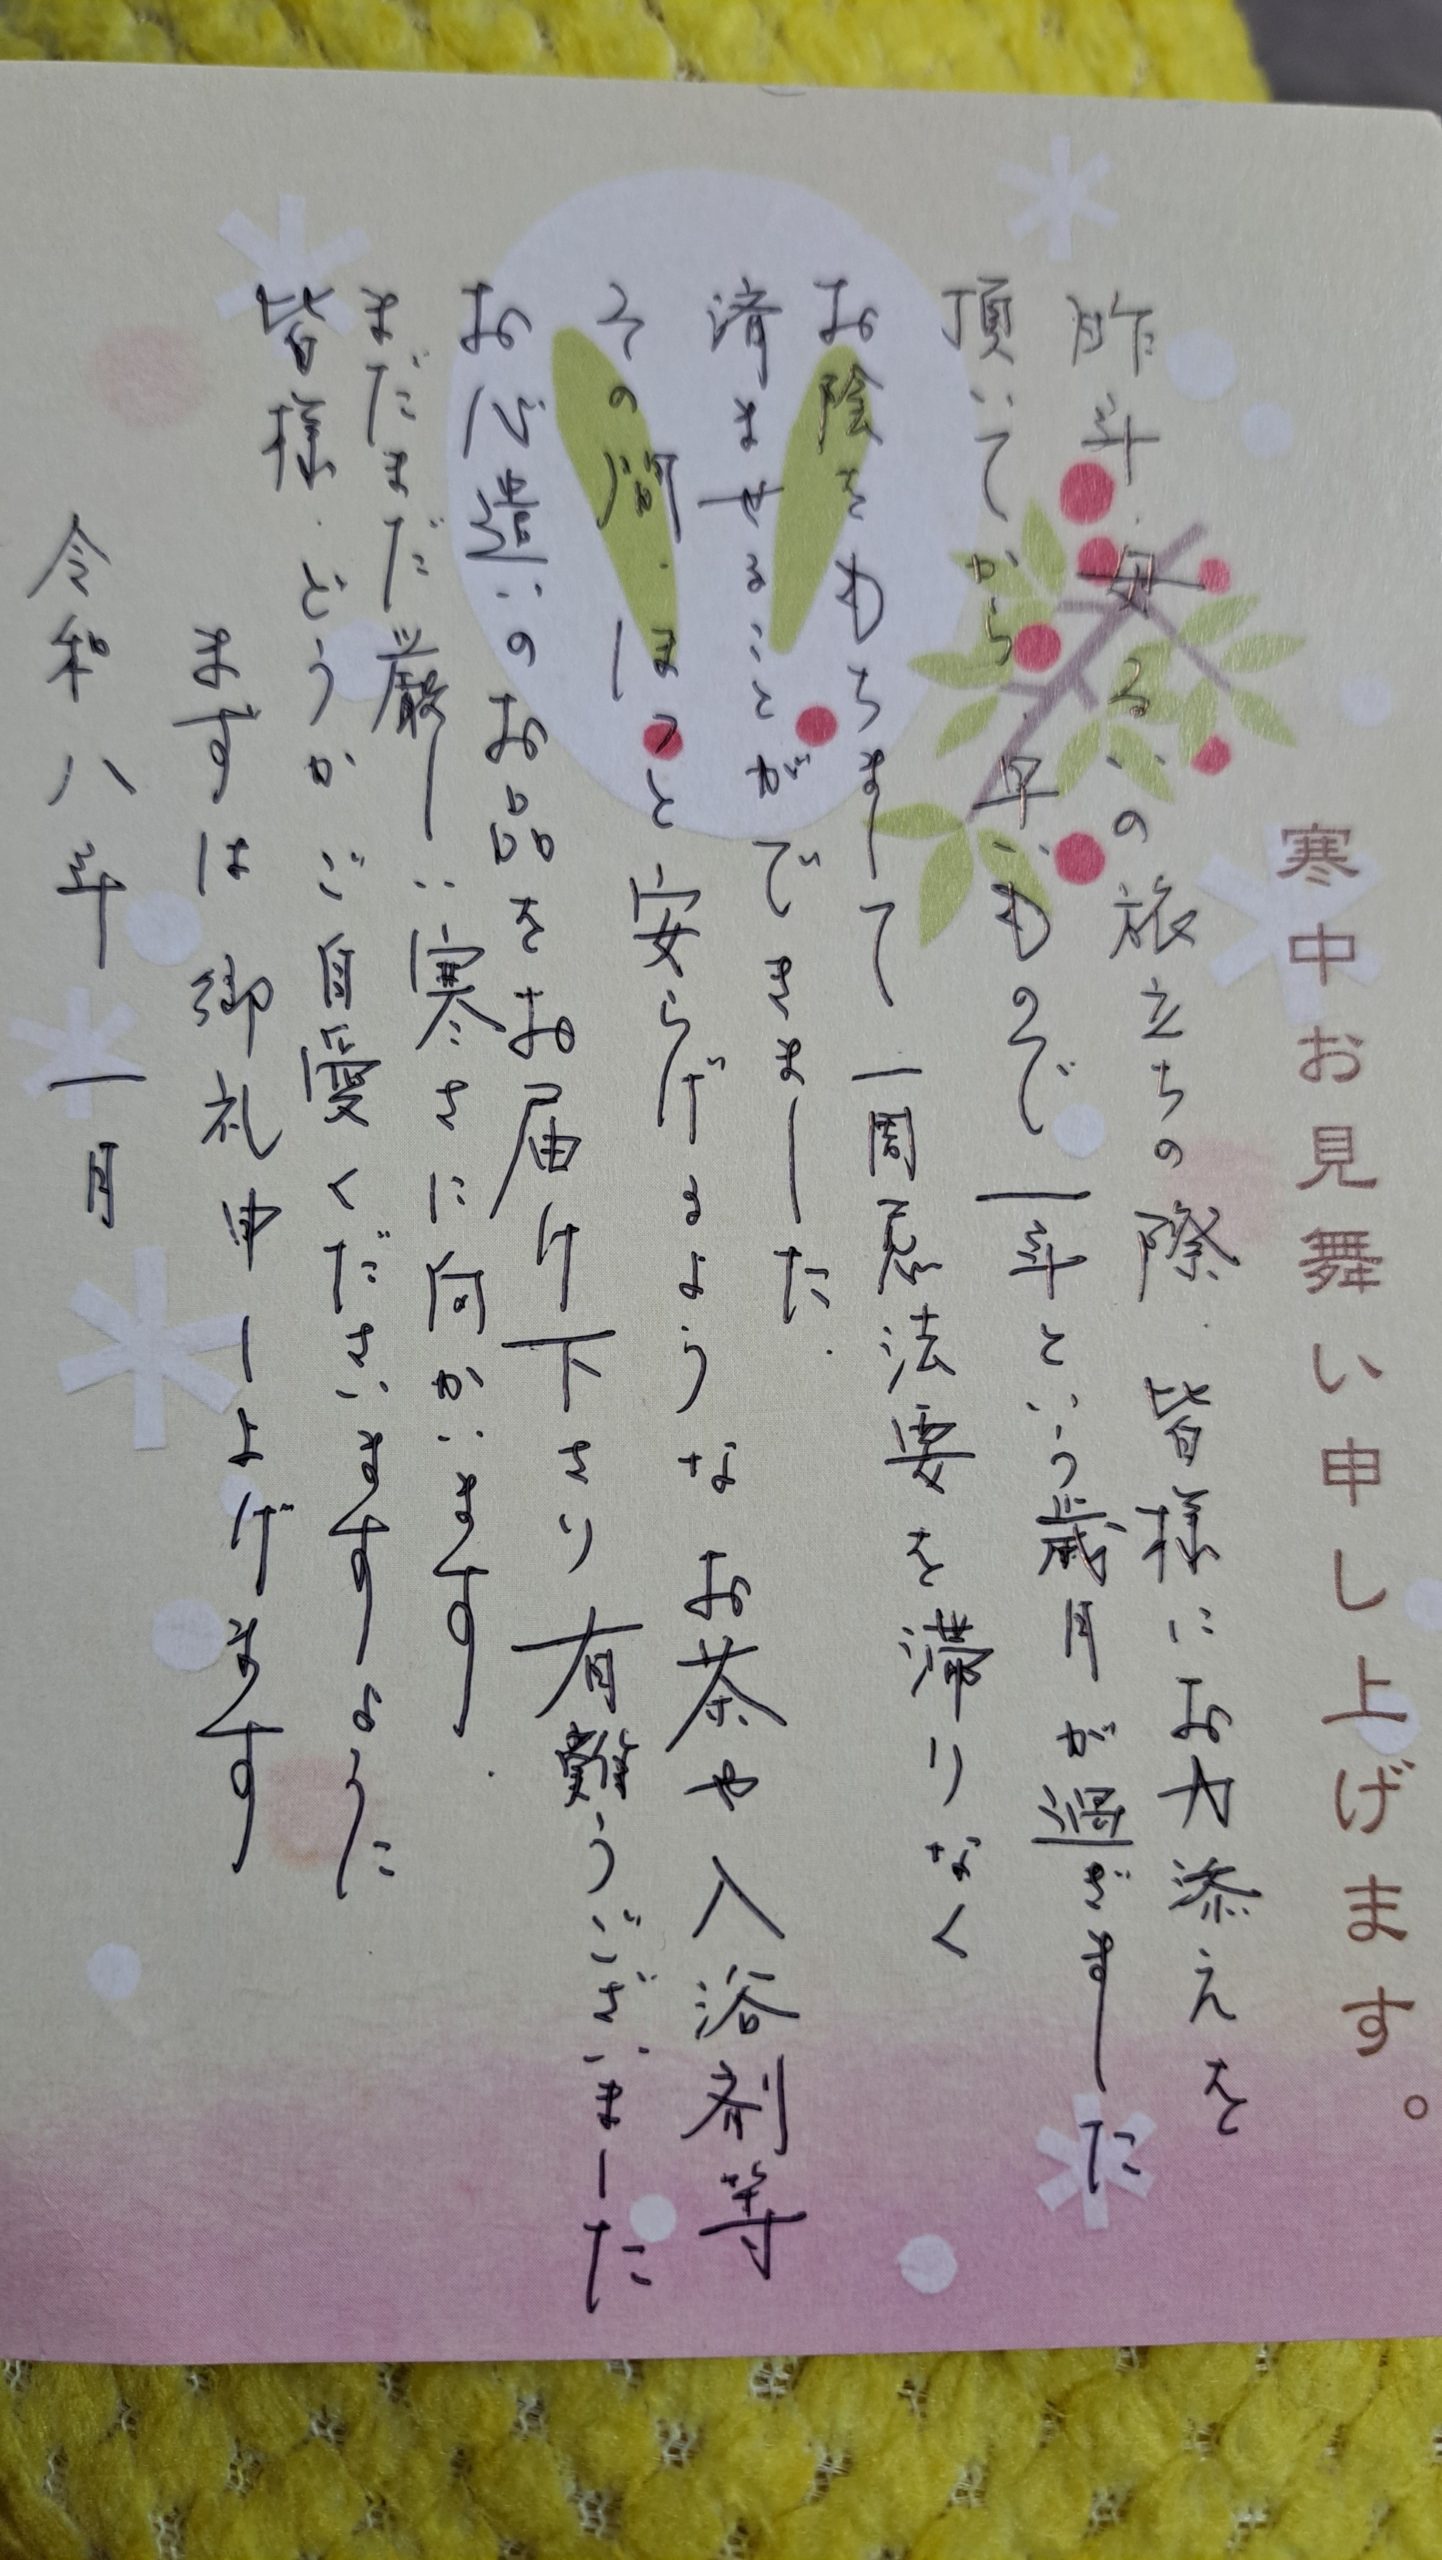 寒中お見舞い申し上げます。
昨年、母るいの旅立ちの際、皆様にお力添えを
頂いてから、早いもので一年という歳月が過ぎました
お陰をもちまして一周忌法要を滞りなく
済ませることができました。
その間、ほっと安らげるようなお茶や入浴剤等
お心遣いのお品をお届け下さり有難うございました
まだまだ厳しい寒さに向かいます。
皆様、どうかご自愛くださいますように
まずは御礼申し上げます
令和八年一月